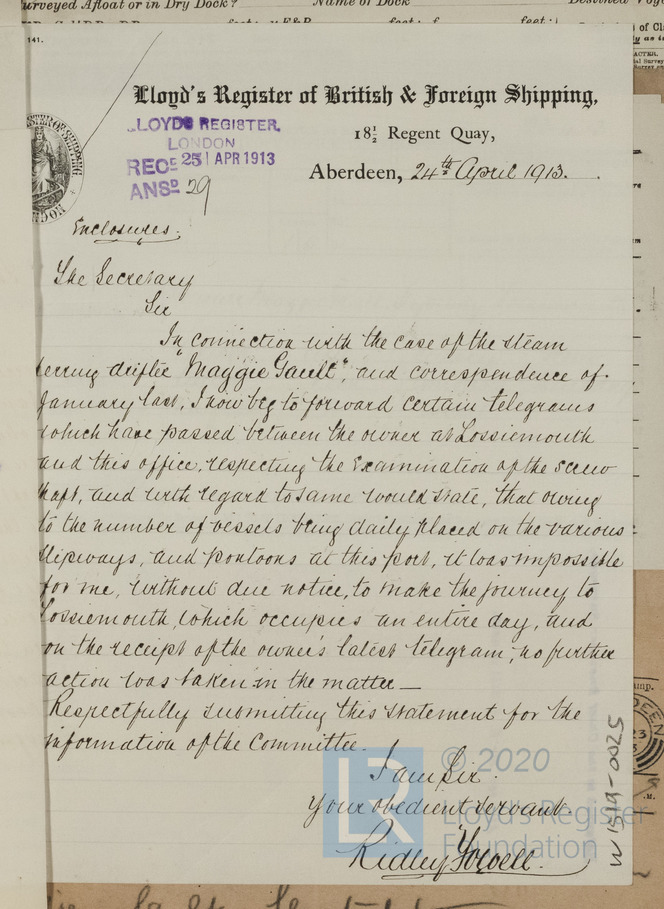 urveyed Afloat or in Dry Dock?
Name of Dock
Destined Voy
feet:
feet: f
feet:
of Cl
ly as i
141.
Lloyd's Register of British & Foreign Shipping,
18½ Regent Quay,
Aberdeen, 24th April 1913.
LLOYDS REGISTER,
LONDON
RECD 25 APR 1913
ANSD 29
Enclosures.
The Secretary
Sir
In connection with the case of the steam
erring drifter "Maggie Gault", and correspondence of
January last, I now beg to forward certain telegrams
which have passed between the owner at Lossiemouth
and this office, respecting the Examination of the screw
haft, and with regard to same would state, that owing
to the number of vessels being daily placed on the various
slipways, and pontoons at this port, it was impossible
for me, without due notice, to make the journey to
Lossiemouth, which occupies an entire day, and
on the receipt of the owner's latest telegram, no further
action was taken in the matter—
Respectfully submitting this statement for the
information of the Committee.
I am Sir.
Your obedient servant.
Ridley Yowell.
W1519-0025
© 2020
Lloyd's Register
Foundation
LR